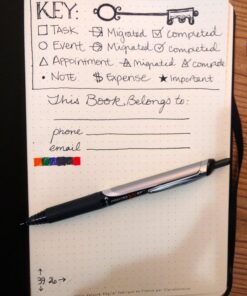 KEY:
Task Migrated Competed
Event Migrated Competed
Appointment migrated compete
• Note $ Expense ★ Important
This Book Belongs to:
phone
email
39 26